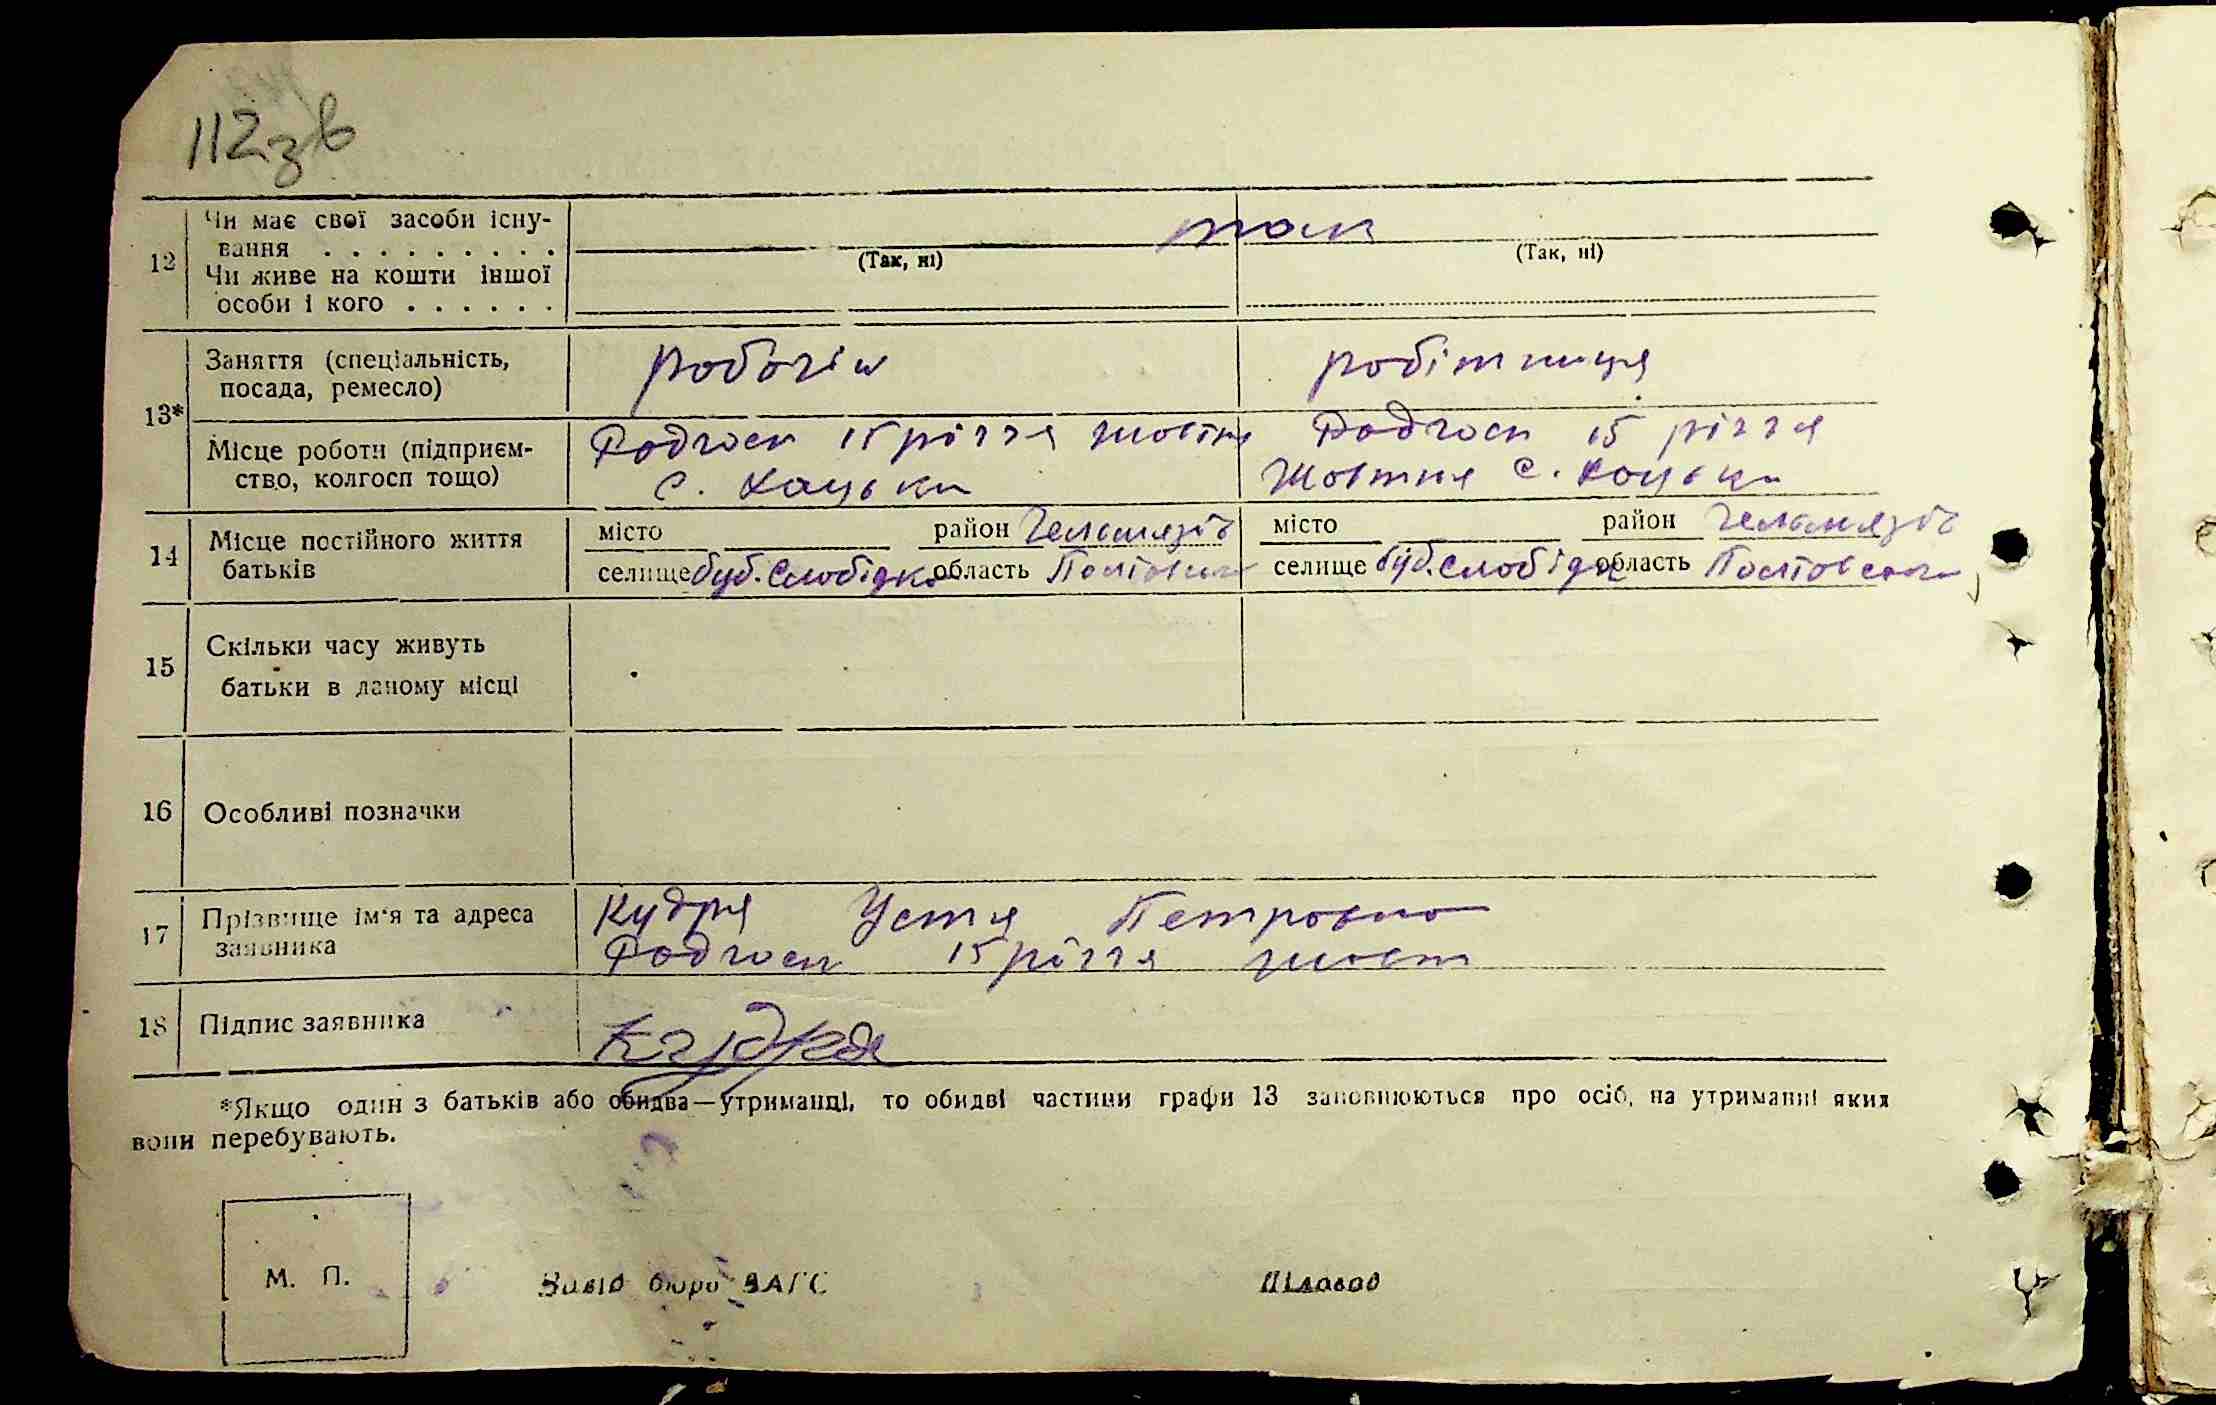 112зв
12
Чи має свої засоби існу-
вання . . . . . . . . .
так
(Так, ні)
(Так, ні)
Чи живе на кошти іншої
особи і кого . . . . . .
13*
Заняття (спеціальність,
посада, ремесло)
робочій
робітниця
Місце роботи (підприєм-
ство, колгосп тощо)
Радгосп 15 річчя жовтня
с. Коцьки
Радгосп 15 річчя
Жовтня с. Коцьки
14
Місце постійного життя
батьків
місто район Гельмязів
селище буб. Слобідка область Полтавська
місто район Гельмязів
селище буб. Слобідка область Полтавська
15
Скільки часу живуть
батьки в даному місці
16
Особливі позначки
17
Прізвище ім'я та адреса
заявника
Кудря Устя Петровна
Радгосп 15 річчя жовт
18
Підпис заявника
Кудря
*Якщо один з батьків або обидва—утриманці, то обидві частини графи 13 заповнюються про осіб, на утриманні яких
вони перебувають.
М. П.
Завід бюро ЗАГС
Діловод